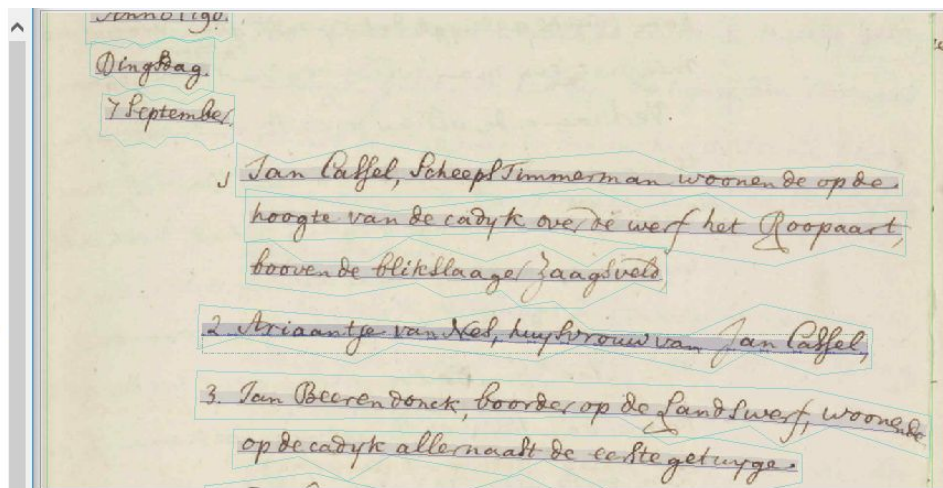 Anno 1790.
Dingsdag.
7 September.
1 Jan Cassel, Scheeps Timmerman woonende op de
hoogte van de cadyk over de werf het Roopaart,
boovende blikslaager Zaagsveld
2 Ariaantje van Nes, huysvrouw van Jan Cassel,
3. Jan Beerendonck, boorder op de Landswerf, woonende
op de cadyk allernaast de eerste getuyge.